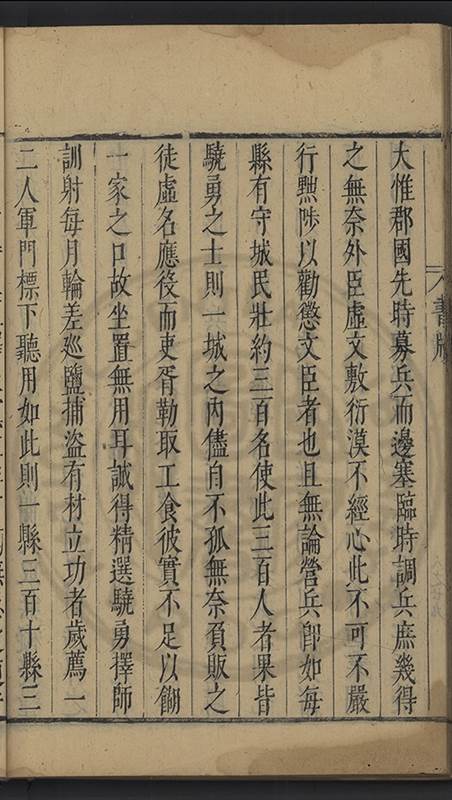 大惟郡國先時募兵而邊塞臨時調兵庶幾得
之無奈外臣虛文敷衍漠不經心此不可不嚴
行黜陟以勸懲文臣者也且無論營兵卽如每
縣有守城民壯約三百名使此三百人者果皆
驍勇之士則一城之內儘自不孤無奈負販之
徒虛名應役而吏胥勒取工食彼實不足以餬
一家之口故坐置無用耳誠得精選驍勇擇師
訓射每月輪差廵鹽捕盜有材立功者歲薦一
二人軍門標下聽用如此則一縣三百十縣三